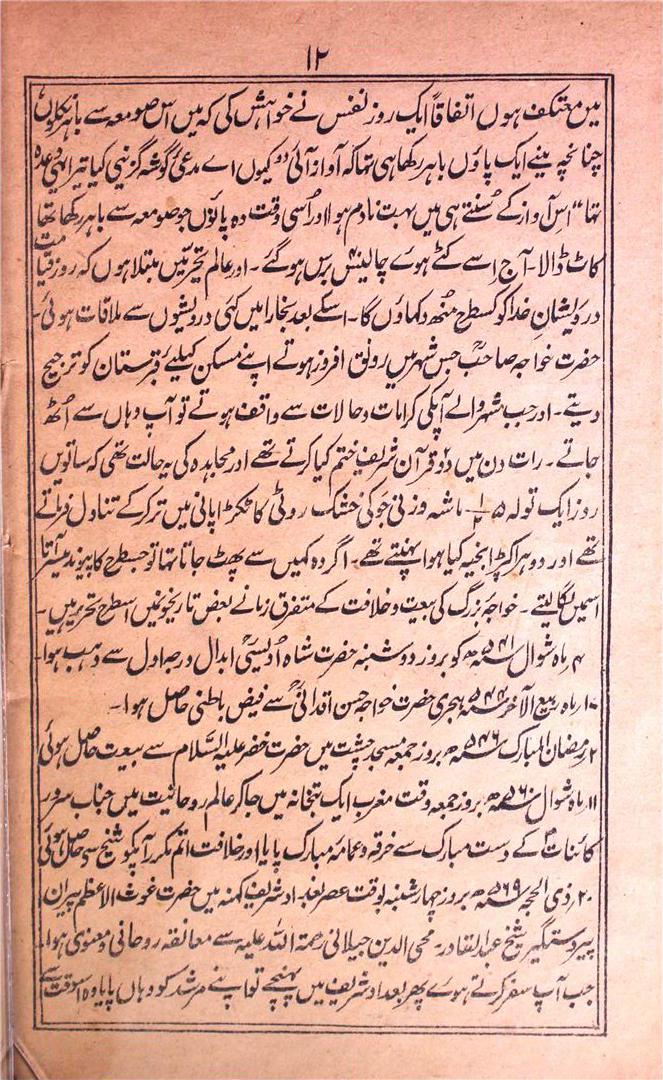 ۱۲
میں معتکف ہوں اتفاقاً ایک روز نفس نے خواہش کی کہ میں اس صومعہ سے باہر نکلوں
چنانچہ مینے ایک پاؤں باہر رکھا ہی تہا کہ آواز آئی دو کیوں اے مدعی گوشہ گزینی کیا تیرا یہی وعدہ
تہا" اس آواز کے سُنتے ہی میں بہت نادم ہوا اور اُسی وقت وہ پاؤں جو صومعہ سے باہر رکھا تھا
کاٹ ڈالا۔ آج اسے کٹے ہوے چالیس۴۰ برس ہوگئے۔ اور عالم تحیّر میں مبتلا ہوں کہ روز قیامت
درویشانِ خدا کو کسطرح مُنھ دکھاؤں گا۔ اسکے بعد بخارا میں کئی درویشوں سے ملاقات ہوئی۔
حضرت خواجہ صاحبؒ جس شہر میں رونق افروز ہوتے اپنے مسکن کیلئے قبرستان کو ترجیح
دیتے۔ اور جب شہر والے آپکی کرامات و حالات سے واقف ہوتے تو آپ وہاں سے اُٹھ
جاتے۔ رات دن میں دو قرآن شریف ختم کیا کرتے تھے اور مجاہدہ کی یہ حالت تھی کہ ساتویں
روز ایک تولہ ۵ ۱/۲ ماشہ وزنی جَو کی خشک روٹی کا ٹکڑا پانی میں تر کر کے تناول فرماتے
تھے اور دوہرا کپڑا بخیہ کیا ہوا پہنتے تھے۔ اگر وہ کہیں سے پھٹ جاتا تہا تو جسطرح کا پیوند میسّر آتا
اسمیں لگا لیتے۔ خواجہ بزرگ کی بیعت و خلافت کے متفرق زمانے بعض تاریخوں میں اسطرح تحریر ہیں۔
۴ ماہ شوال ۵۴۱ھ کو بروز دوشنبہ حضرت شاہ ادریسؒ ابدال درجہ اول سے وہب ہوا۔
۱۰ ماہ ربیع الآخر ۵۴۴ ہجری حضرت خواجہ حسن اقدانیؒ سے فیض باطنی حاصل ہوا۔
۲ رمضان المبارک ۵۴۶ھ بروز جمعہ مسجد چشت میں حضرت خضر علیہ السّلام سے بیعت حاصل ہوئی
۱۱ ماہ شوال ۵۶۰ھ بروز جمعہ وقت مغرب ایک بتخانہ میں جا کر عالم روحانیت میں جناب سرور
کائنات کے دست مبارک سے خرقہ و عمامہ مبارک پایا اور خلافت اتم مکرر آپکو شیخ سے حاصل ہوئی
۲۰ ذی الحجہ ۵۶۹ھ بروز چہار شنبہ بوقت عصر بغداد شریف کہنہ میں حضرت غوث الاعظم پیران
پیر دستگیر شیخ عبدالقادر۔ محی الدین جیلانی رحمۃ اللہ علیہ سے معانقہ روحانی و معنوی ہوا۔
جب آپ سفر کرتے ہوے پھر بغداد شریف میں پہنچے تو اپنے مرشد کو وہاں پایا وہ اسوقت سے